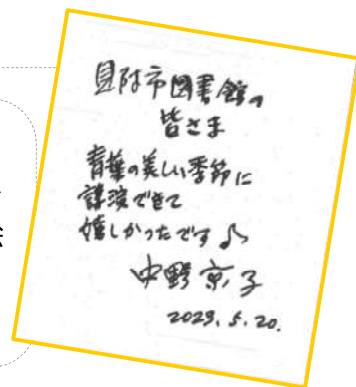 見附市図書館の
皆さま
青葉の美しい季節に
講演できて
嬉しかったです♪
中野京子
2023.5.20.